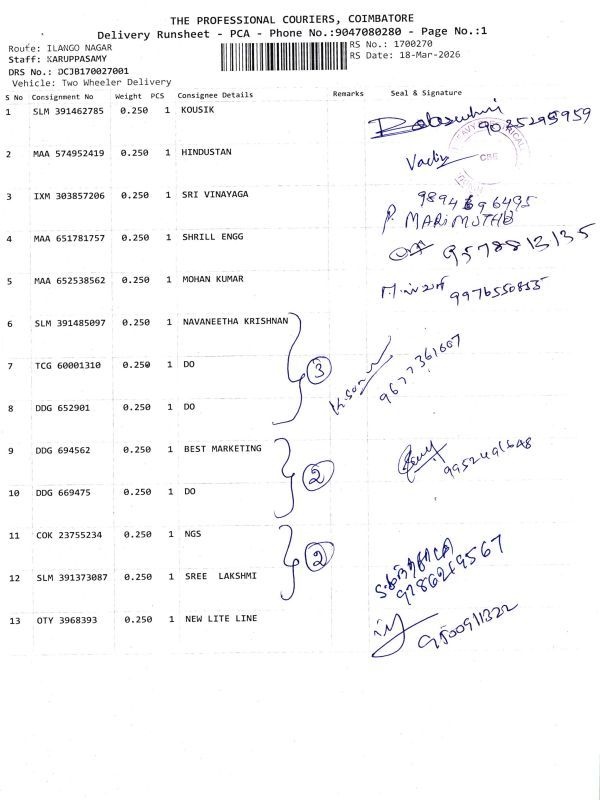 THE PROFESSIONAL COURIERS, COIMBATORE
Delivery Runsheet - PCA - Phone No.:9047080280 - Page No.:1
Route: ILANGO NAGAR RS No.: 1700270
Staff: KARUPPASAMY RS Date: 18-Mar-2026
DRS No.: DCJB170027001
Vehicle: Two Wheeler Delivery
S No Consignment No Weight PCS Consignee Details Remarks Seal & Signature
1 SLM 391462785 0.250 1 KOUSIK
2 MAA 574952419 0.250 1 HINDUSTAN
CBE
3 IXM 303857206 0.250 1 SRI VINAYAGA
P. MARIMUTHU
4 MAA 651781757 0.250 1 SHRILL ENGG
9578813135
5 MAA 652538562 0.250 1 MOHAN KUMAR
9976550855
6 SLM 391485097 0.250 1 NAVANEETHA KRISHNAN
7 TCG 60001310 0.250 1 DO 3 9677361607
8 DDG 652901 0.250 1 DO
9 DDG 694562 0.250 1 BEST MARKETING
2
10 DDG 669475 0.250 1 DO
11 COK 23755234 0.250 1 NGS
2
12 SLM 391373087 0.250 1 SREE LAKSHMI 9786219567
13 OTY 3968393 0.250 1 NEW LITE LINE 9500911322